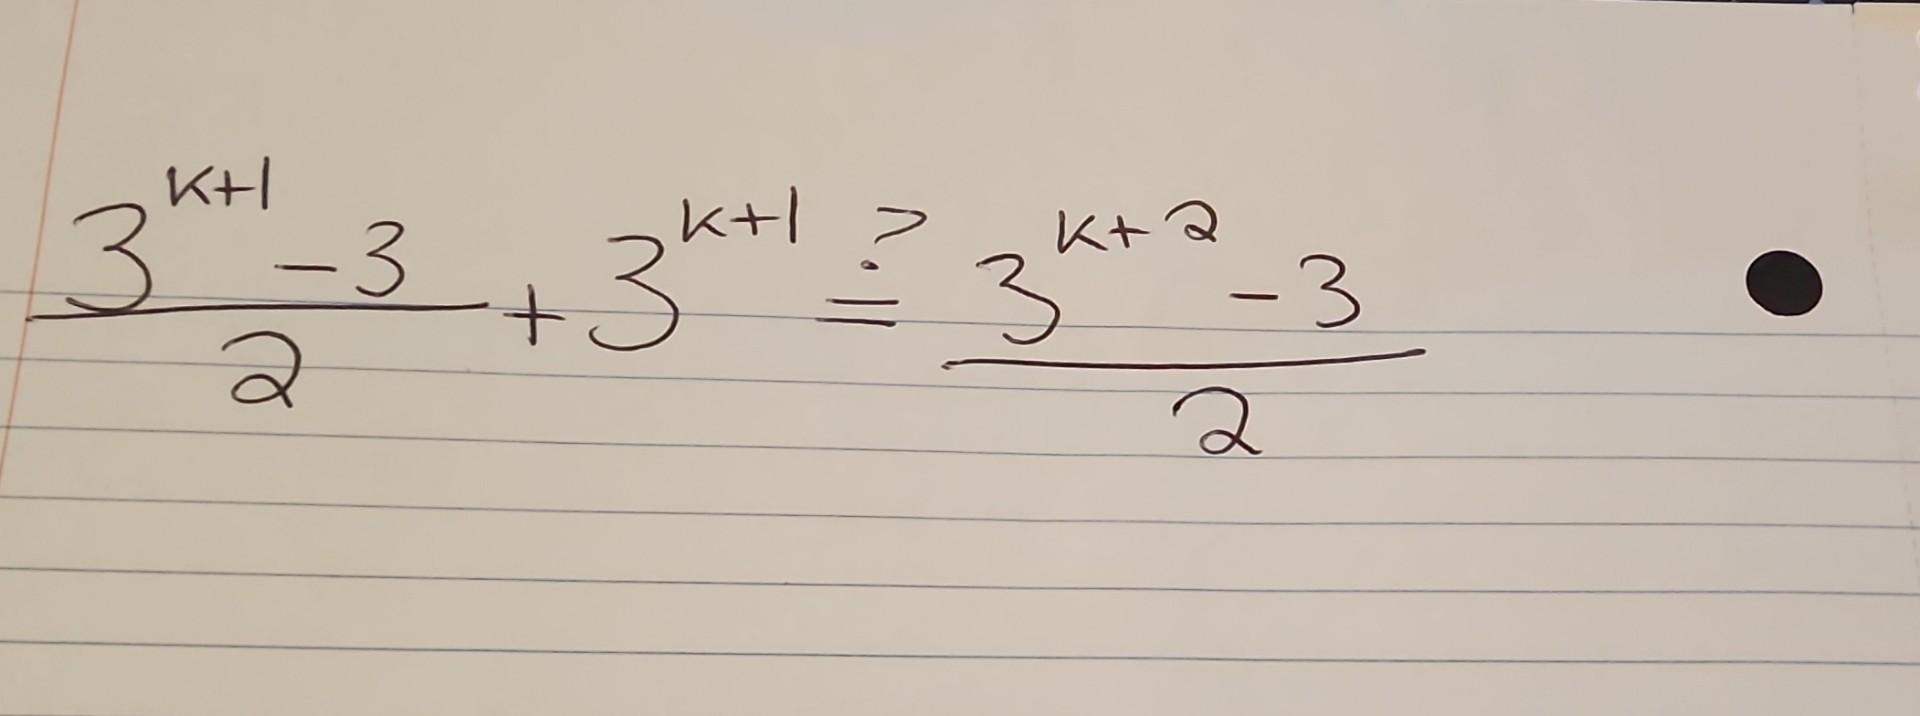 \frac{3^{k+1} - 3}{2} + 3^{k+1} \stackrel{?}{=} \frac{3^{k+2} - 3}{2}